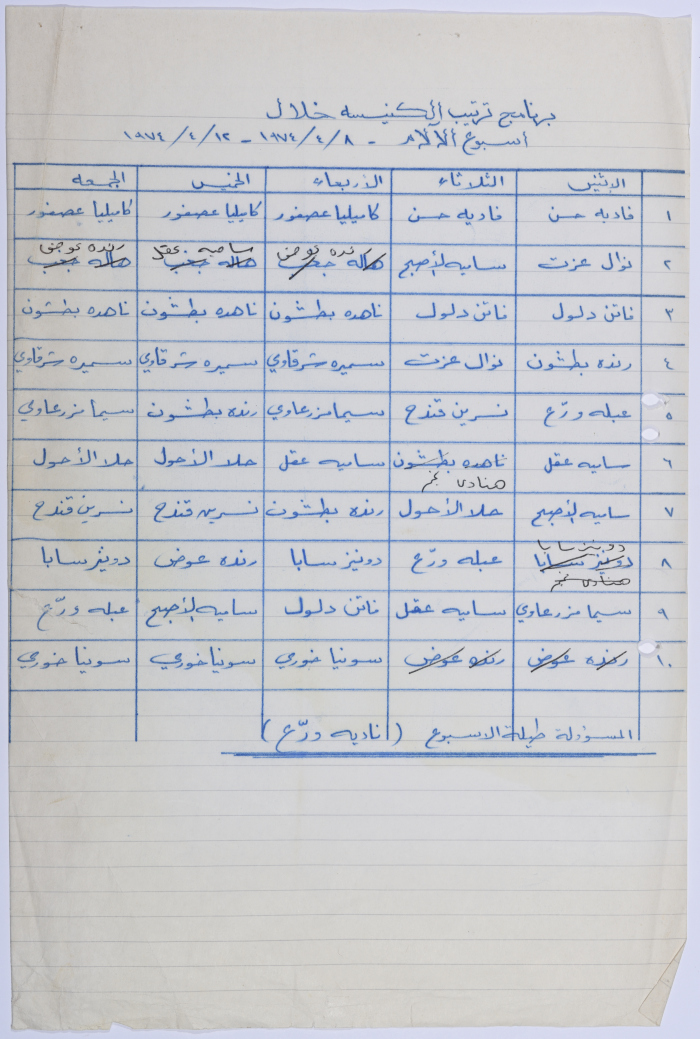 برنامج ترتيب الكنيسه خلال
اسبوع الآلام - ٨/٤/١٩٧٤ - ١٢/٤/١٩٧٤
الإثنين الثلاثاء الأربعاء الخميس الجمعه
١ فاديه حسن فاديه حسن كاميليا عصفور كاميليا عصفور كاميليا عصفور
رنده عوض ساميه عقل رنده عوض
٢ نوال عزت ساميه الأصبح هاله هاله هاله
٣ فاتن دلول فاتن دلول ناهده بطشون ناهده بطشون ناهده بطشون
٤ رنده بطشون نوال عزت سميره شرقاوي سميره شرقاوي سميره شرقاوي
٥ عبله ورّع نسرين قندح سيما مزرعاوي رنده بطشون سيما مزرعاوي
٦ ساميه عقل ناهده بطشون ساميه عقل حلا الأحول حلا الأحول
هنادى نجم
٧ ساميه الأصبح حلا الأحول رنده بطشون نسرين قندح نسرين قندح
دونيز سابا
٨ دونيز سابا عبله ورّع دونيز سابا رنده عوض دونيز سابا
هنادى نجم
٩ سيما مزرعاوي ساميه عقل فاتن دلول ساميه الأصبح عبله ورّع
١٠ رنده عوض رنده عوض سونيا خوري سونيا خوري سونيا خوري
المسؤولة طيلة الاسبوع (ناديه ورّع)